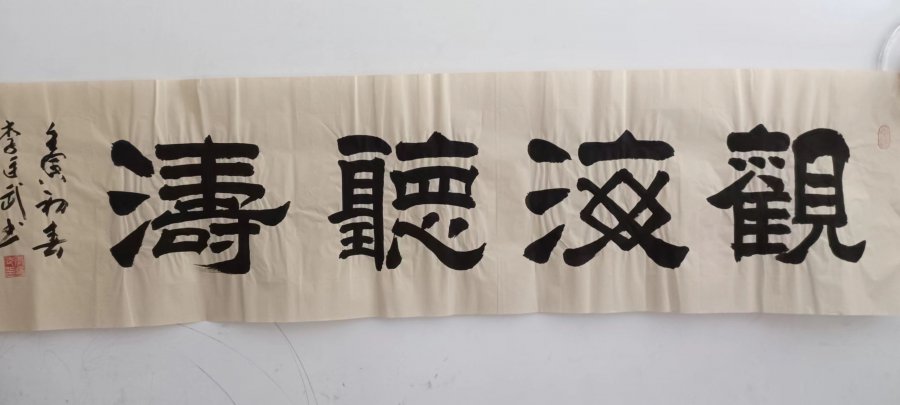 觀海聽濤
壬寅初春
李廷武书